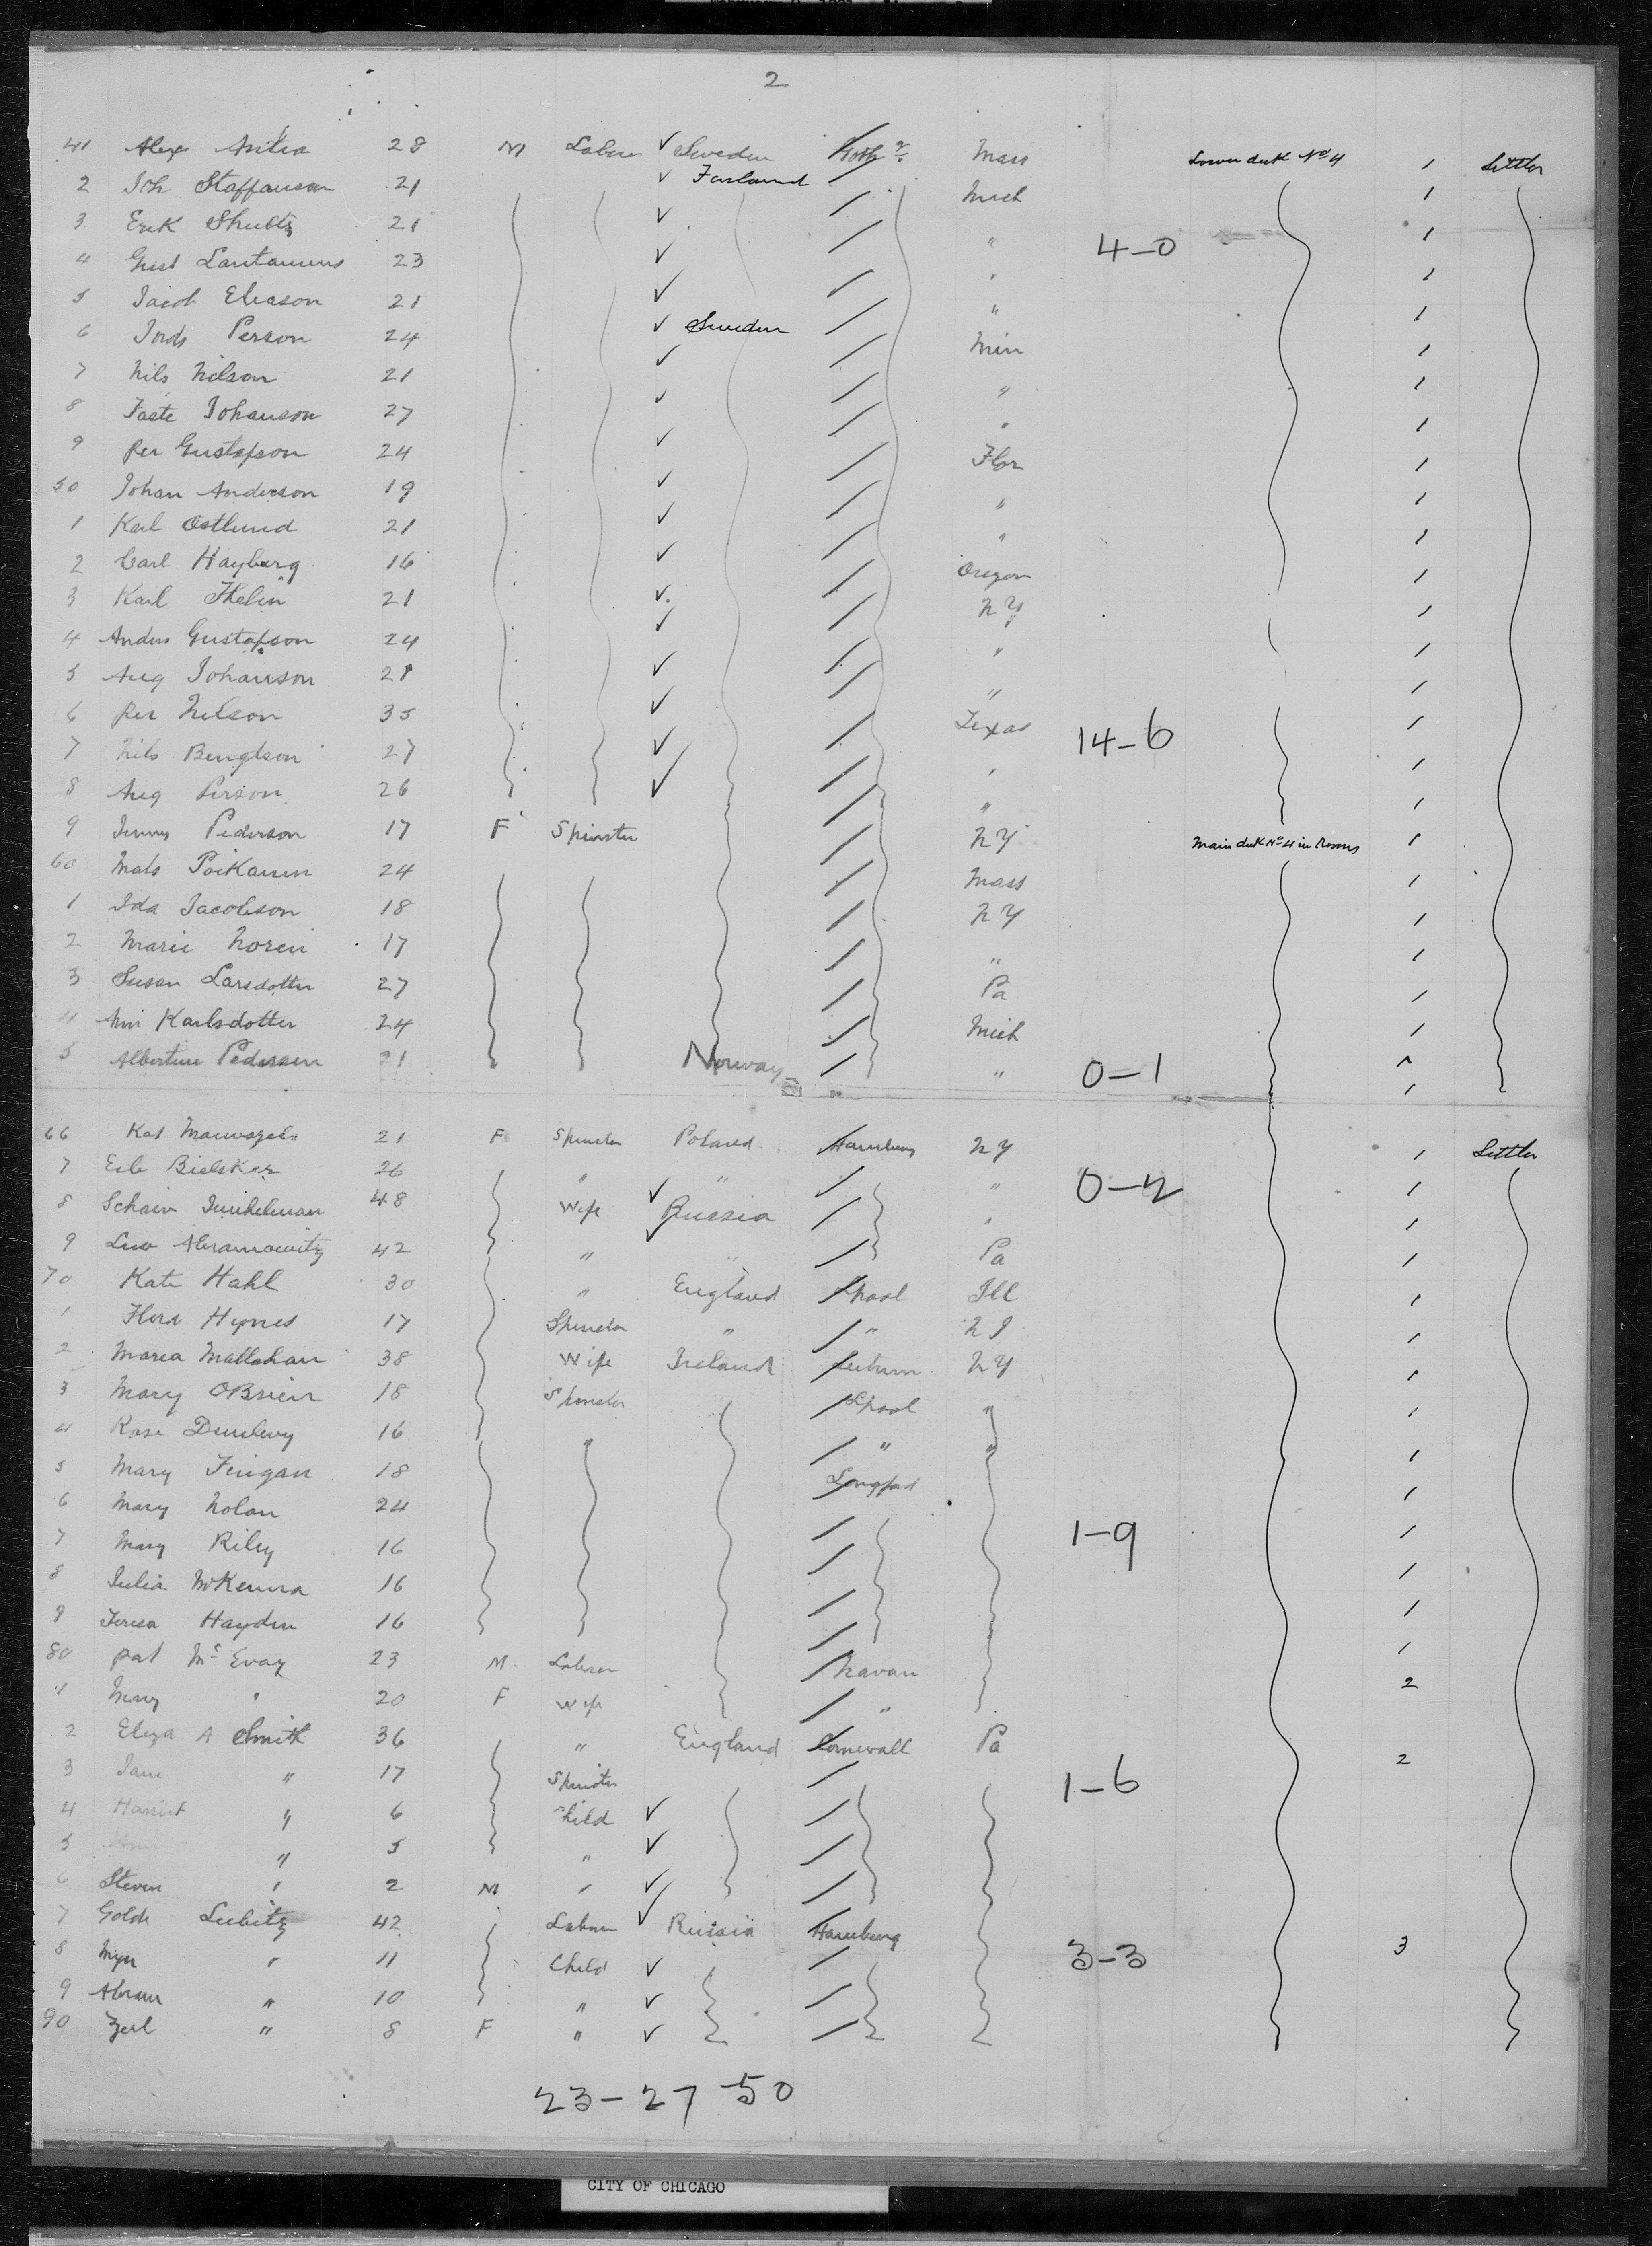 2
41 Alex Antra 28 M Labour ✓ Sweden Mass Lower deck No 4 1 Settler
2 Joh Staffanson 21 ✓ Finland Mich 1
3 Erik Shultz 21 ✓ " 4-0 1
4 Gust 23 ✓ " 1
5 Jacob Eliason 21 ✓ " 1
6 Person 24 ✓ Sweden Min 1
7 Nils Nilson 21 ✓ " 1
8 Johanson 27 ✓ " 1
9 Per Gustafson 24 ✓ Flor 1
50 Johan Anderson 19 ✓ " 1
1 Karl Ostlund 21 ✓ " 1
2 Carl Hayburg 16 ✓ Oregon 1
3 Karl Thelin 21 ✓ NY 1
4 Anders Gustafson 24 ✓ " 1
5 Aug Johanson 21 ✓ " 1
6 Per Nelson 35 ✓ Texas 14-6 1
7 Nils Bengtson 27 ✓ " 1
8 Aug Person 26 ✓ " 1
9 Jenny Pederson 17 F Spinster NY Main deck No 4 in Rooms 1
60 Mats 24 Mass 1
1 Ida Jacobson 18 NY 1
2 Marie Noren 17 " 1
3 Susan Larsdotter 27 Pa 1
4 Karlsdotter 24 Mich 1
5 Albertine Pedersen 21 Norway " 0-1 1
66 Kat 21 F Spinster Poland Hamburg NY 1 Settler
7 26 " ✓ " " 0-2 1
8 48 Wife ✓ Russia " 1
9 Abramowitz 42 " " Pa 1
70 Kate Hahl 30 " England Lpool Ill 1
1 Flora Hynes 17 Spinster " " NJ 1
2 Maria Mallahan 38 Wife Ireland NY 1
3 Mary OBrien 18 Spinster Lpool " 1
4 Rose Dunlevy 16 " " " 1
5 Mary Finigan 18 Longford 1
6 Mary Nolan 24 1
7 Mary Riley 16 1-9 1
8 Julia McKenna 16 1
9 Teresa Hayden 16 1
80 Pat McEvoy 23 M Labour Navan 1
1 Mary " 20 F Wife " 2
2 Eliza A Smith 36 " England Cornwall Pa
3 Jane " 17 Spinster 1-6 2
4 Harriet " 6 Child ✓
5 " 5 " ✓
6 Steven " 2 M " ✓
7 Golde Lubitz 42 Labour ✓ Russia Hamburg
8 " 11 Child ✓ 3-3 3
9 Abram " 10 " ✓
90 " 8 F " ✓
23-27 50
CITY OF CHICAGO